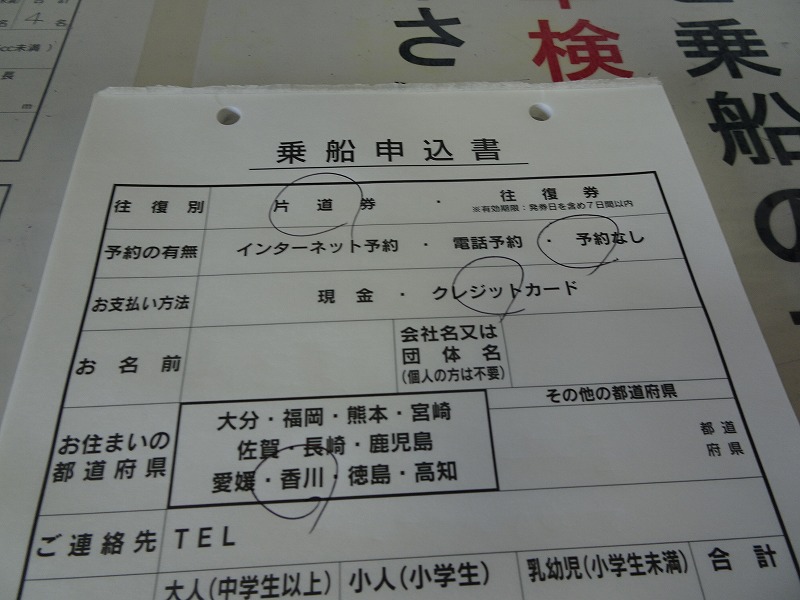 合計
4名
cc未満)
長
m
さ
検
乗船の
乗船申込書
往復別 片道券 ・ 往復券
※有効期限：発券日を含め7日間以内
予約の有無 インターネット予約 ・ 電話予約 ・ 予約なし
お支払い方法 現金 ・ クレジットカード
お名前 会社名又は
団体名
(個人の方は不要)
お住まいの
都道府県
大分・福岡・熊本・宮崎
佐賀・長崎・鹿児島
愛媛・香川・徳島・高知
その他の都道府県
都道
府県
ご連絡先 TEL
大人(中学生以上) 小人(小学生) 乳幼児(小学生未満) 合計